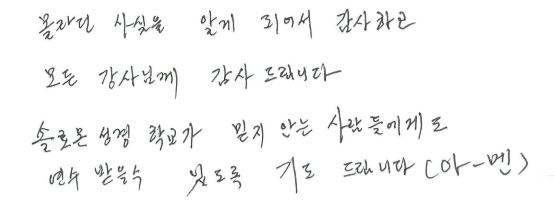 몰라던 사실을 알게 되어서 감사하고
모든 강사님께 감사 드립니다
솔로몬 성경 학교가 믿지 안는 사람들에게도
연수 받을수 있도록 기도 드립니다 (아-멘)